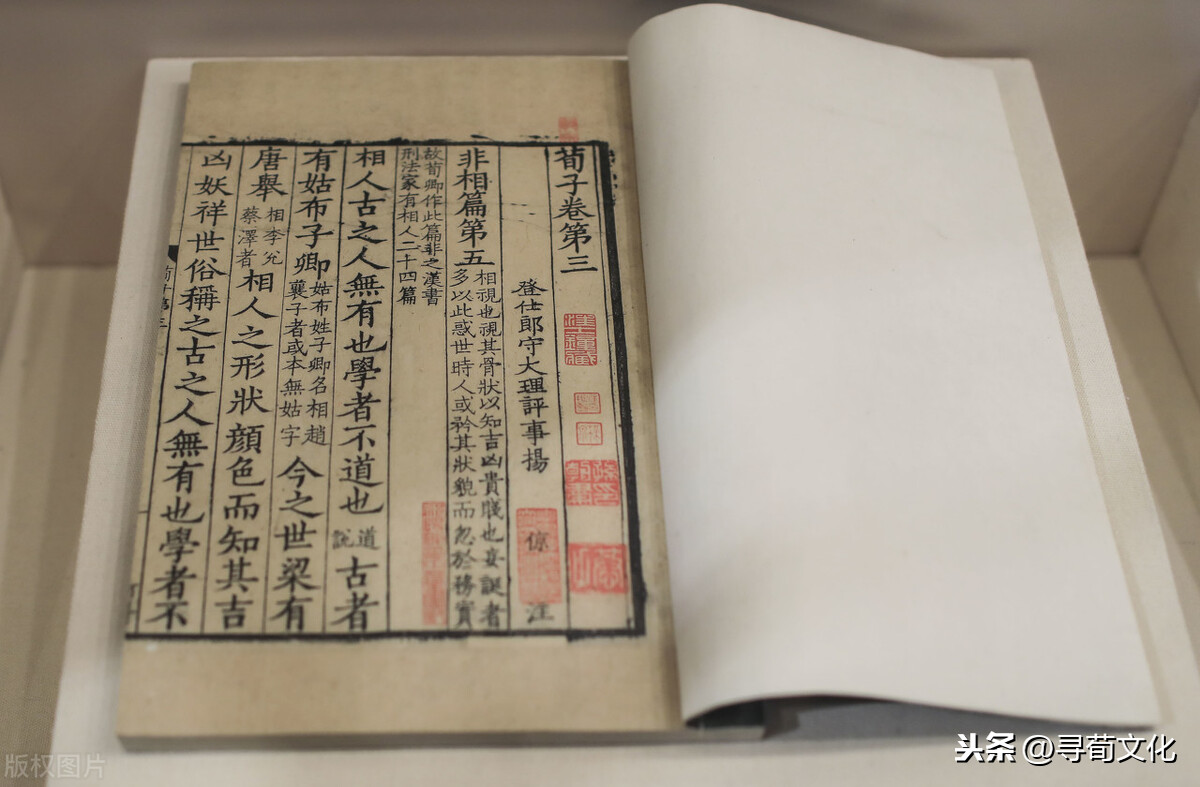 荀子卷第三
登仕郎守大理評事楊 倞 注
非相篇第五 相視也視其骨狀以知吉凶貴賤也妄誕者
多以此惑世時人或矜其狀貌而忽於務實
故荀卿作此篇非之漢書
刑法家有相人二十四篇
相人古之人無有也學者不道也 道說 古者
有姑布子卿 姑布姓子卿名相趙
襄子者或本無姑字 今之世梁有
唐舉 相李兊
蔡澤者 相人之形狀顔色而知其吉
凶妖祥世俗稱之古之人無有也學者不
头条 @寻荀文化
版权图片